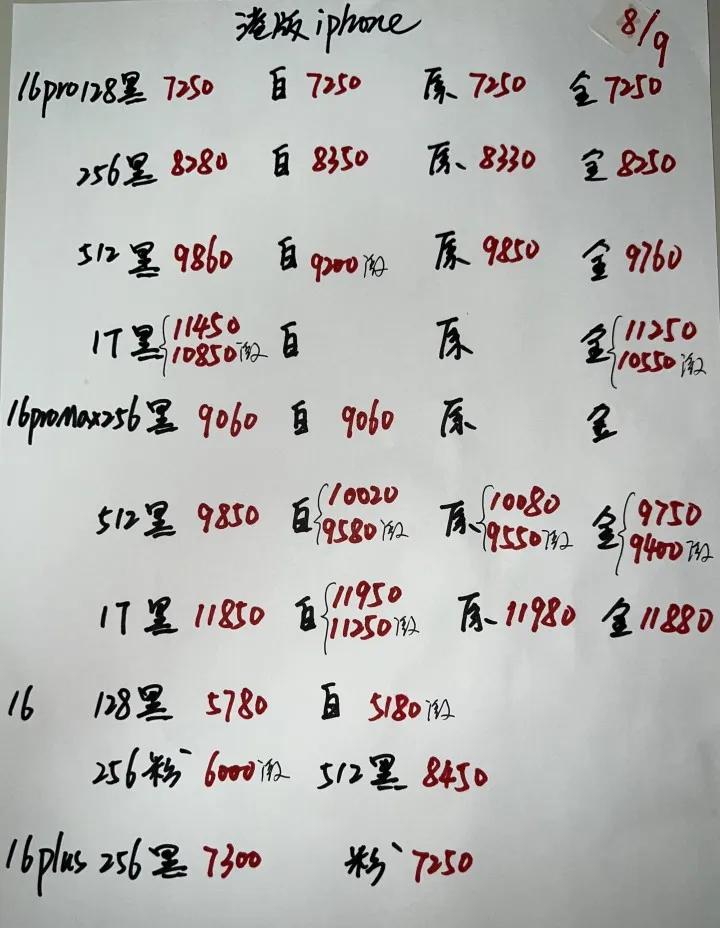 港版iphone
8/9
16pro128黑 7250 白 7250 原 7250 金 7250
256黑 8280 白 8350 原 8330 金 8250
512黑 9860 白 9200激 原 9850 金 9760
1T黑 {11450 10850激 白 原 金 {11250 10550激
16promax256黑 9060 白 9060 原 金
512黑 9850 白 {10020 9580激 原 {10080 9550激 金 {9750 9400激
1T黑 11850 白 {11950 11250激 原 11980 金 11880
16 128黑 5780 白 5180激
256粉 6000激 512黑 8450
16plus 256黑 7300 粉 7250